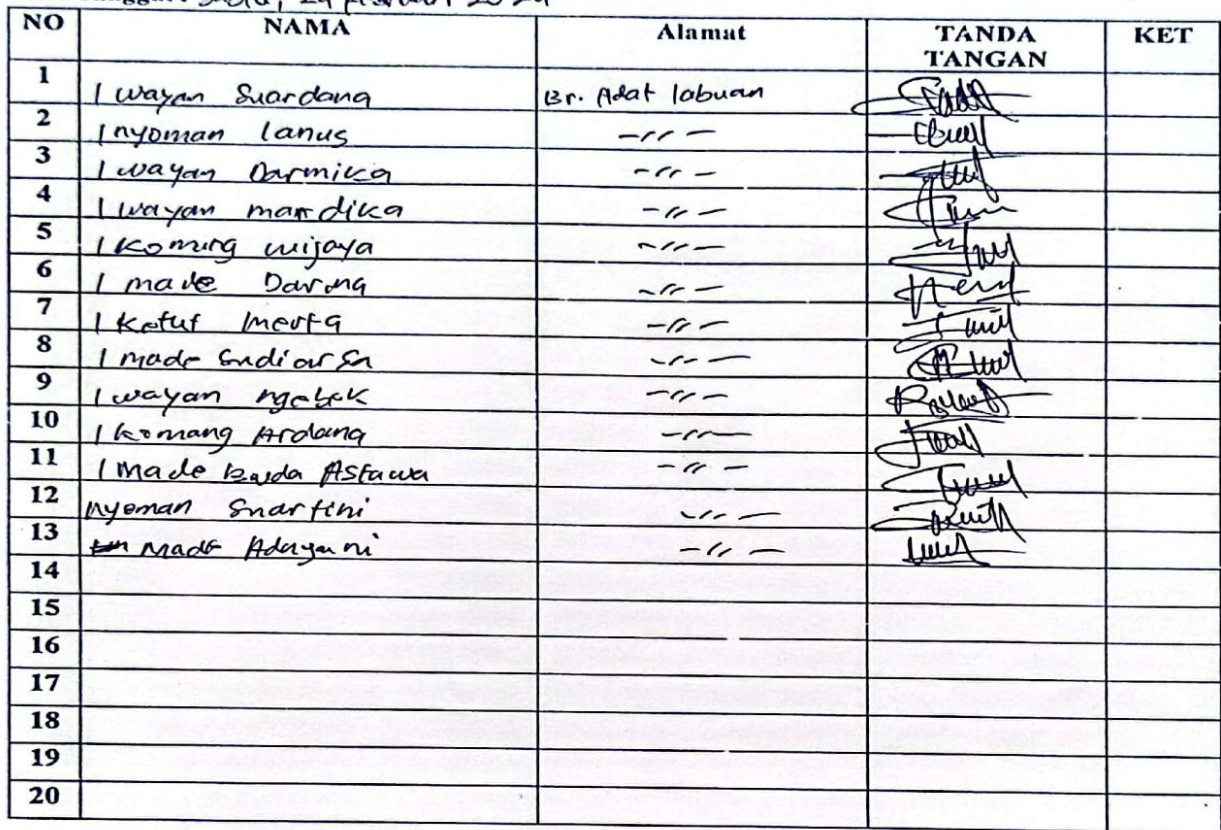 Sabtu, 24 februari 2024
NO NAMA Alamat TANDA TANGAN KET
1 I wayan Suardana Br. Adat labuan
2 I nyoman lanus -〃-
3 I wayan Darmika -〃-
4 I wayan mardika -〃-
5 I Komang wijaya -〃-
6 I made Darma -〃-
7 I Ketut Merta -〃-
8 I made Sudiarsa -〃-
9 I wayan -〃-
10 I Komang Ardana -〃-
11 I Made Astawa -〃-
12 nyoman Suartini -〃-
13 Made -〃-
14
15
16
17
18
19
20